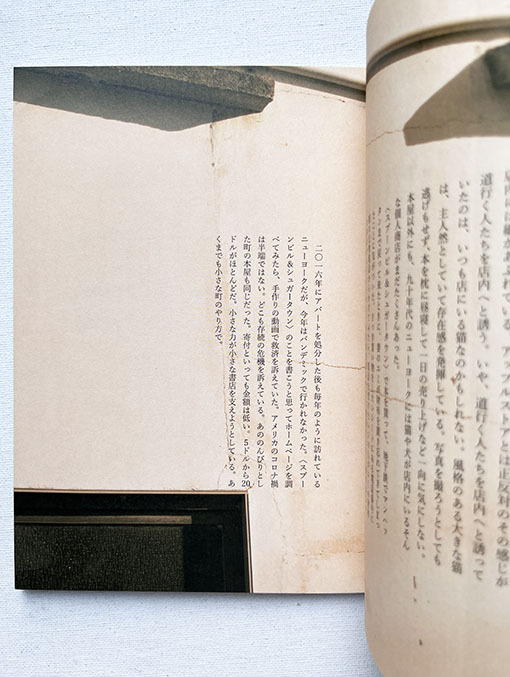 道行く人たちを店内へと誘う。いや、道行く人たちを店内へと誘って
いたのは、いつも店にいる猫なのかもしれない。風格のある大きな猫
は、主人然としていて存在感を発揮している。写真を撮ろうとしても
逃げもせず、本を枕に昼寝して一日の売り上げなど一向に気にしない。
本屋以外にも、九十年代のニューヨークには猫や犬が店内にいるそん
な個人商店がまだたくさんあった。
二〇一六年にアパートを処分した後も毎年のように訪れている
ニューヨークだが、今年はパンデミックで行かれなかった。〈スプー
ンビル&シュガータウン〉のことを書こうと思ってホームページを調
べてみたら、手作りの動画で救済を訴えていた。アメリカのコロナ禍
は半端ではない。どこも存続の危機を訴えている。あののんびりとし
た町の本屋も同じだった。寄付といっても金額は低い。5ドルから20
ドルがほとんどだ。小さな力が小さな書店を支えようとしている。あ
くまでも小さな町のやり方で。